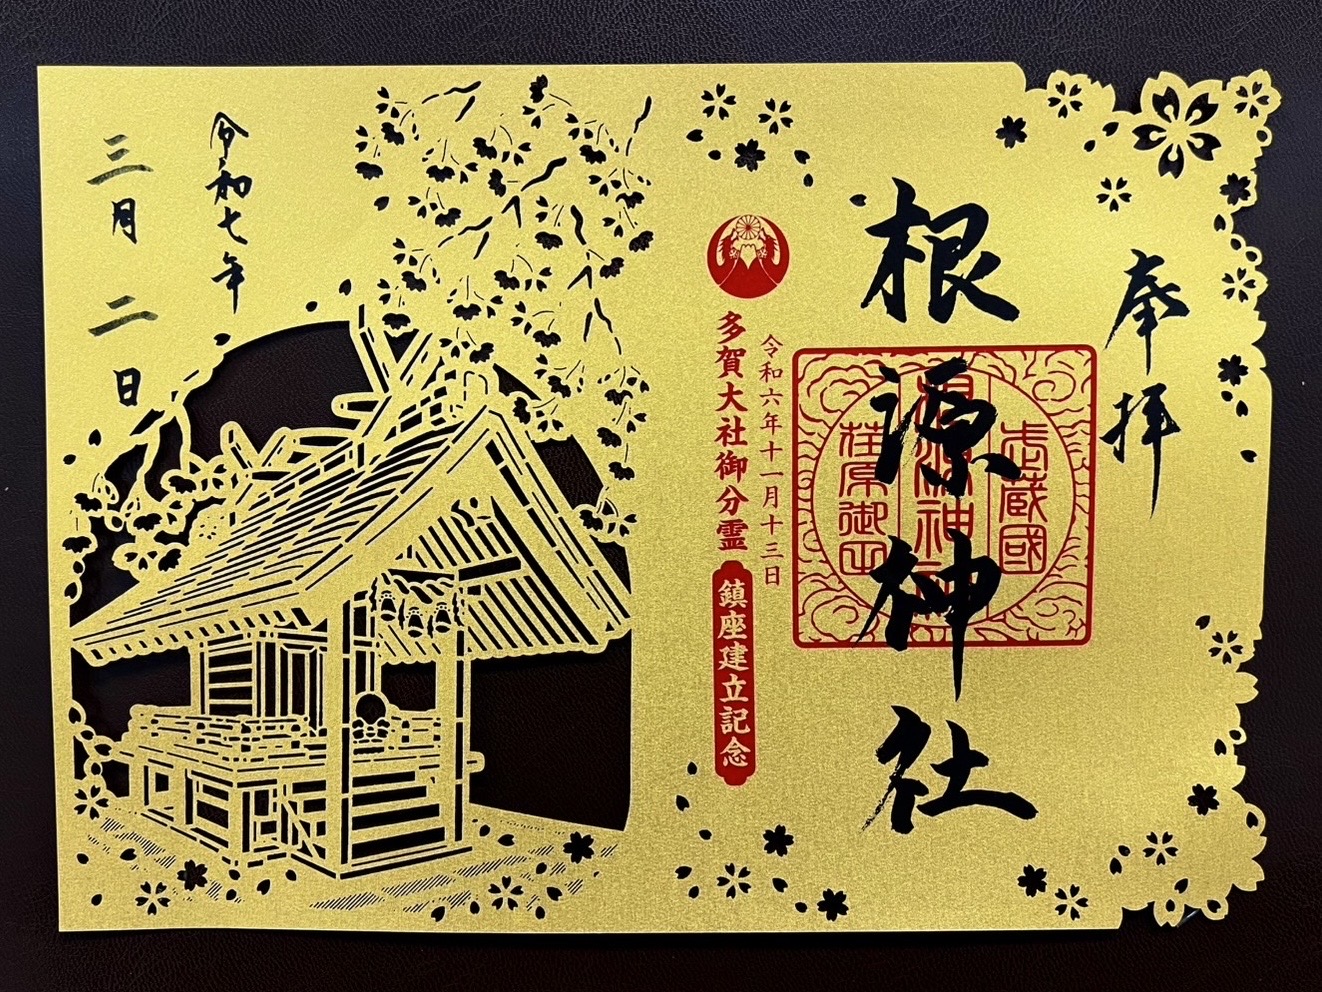 奉拝
根源神社
武蔵國
根源神社
荏原御田
令和六年十一月十三日
多賀大社御分霊
鎮座建立記念
令和七年
三月二日